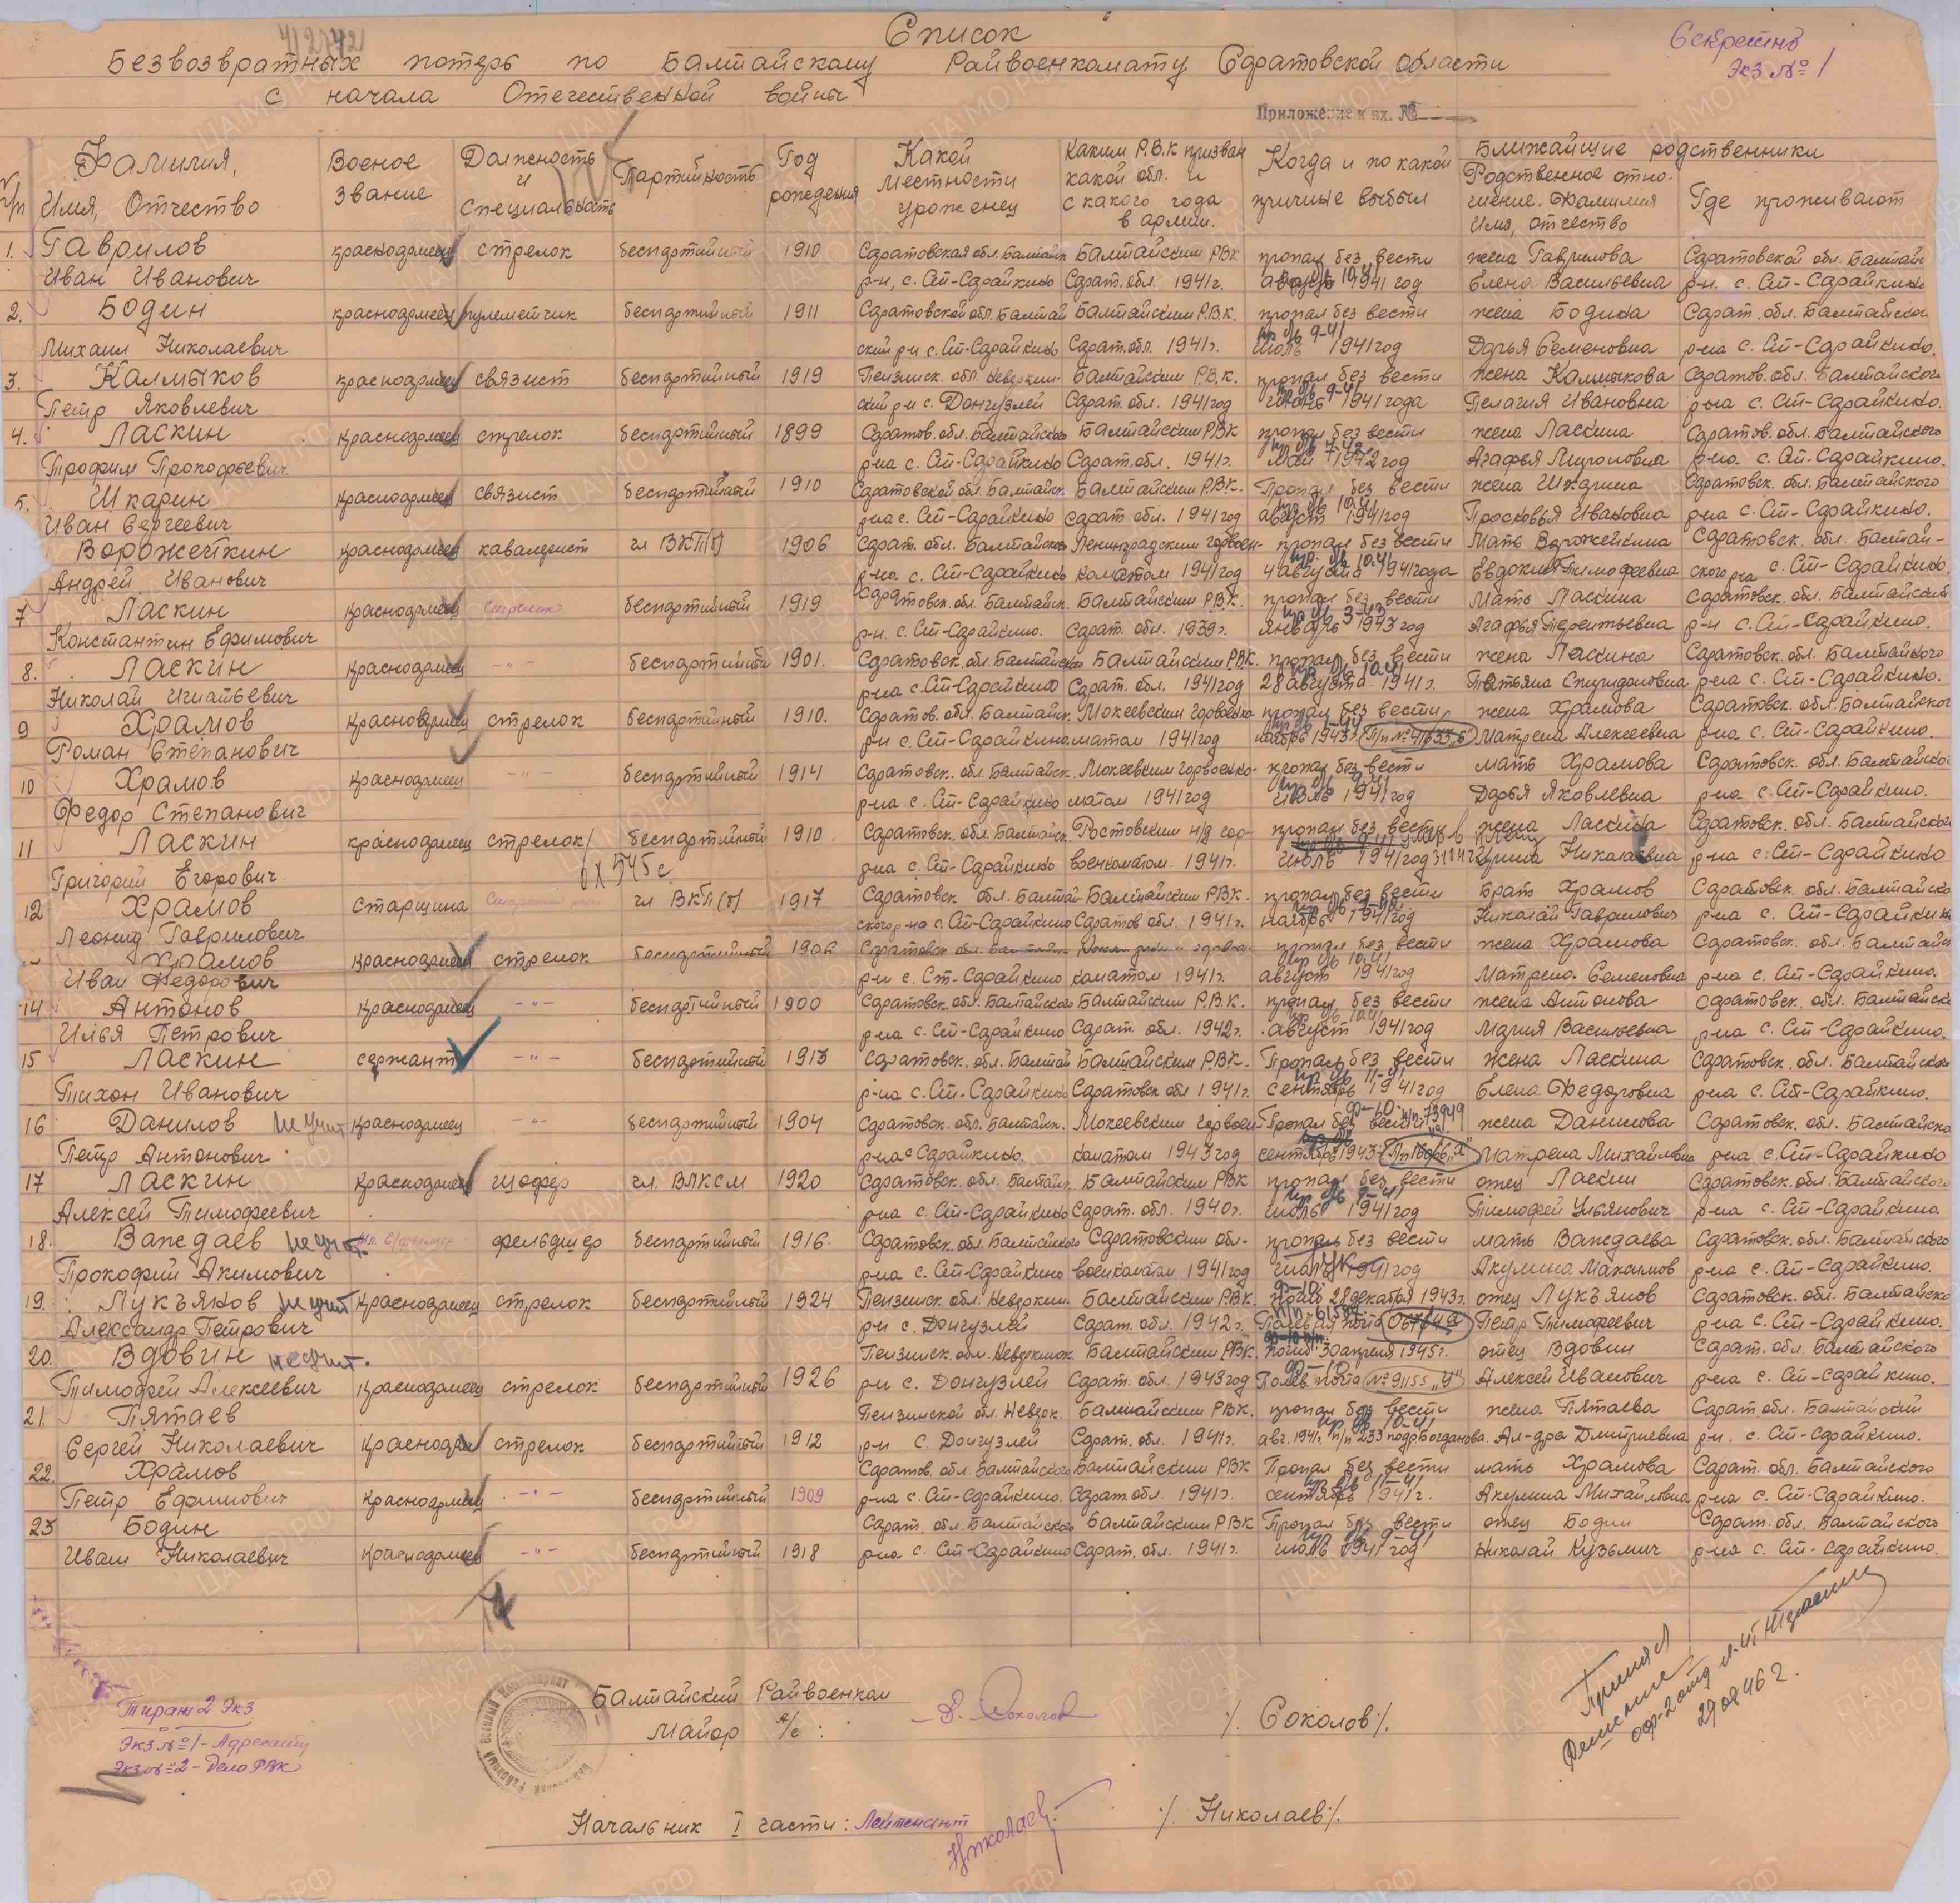 Список
Безвозвратных потерь по Балтайскому Райвоенкомату Саратовской области
с начала Отечественной войны
Секретно
Экз № 1
Приложение к вх. №
Фамилия, Имя, Отчество
Военое звание
Должность и специальность
Партийность
Год рождения
Какой местности уроженец
Каким Р.В.К призван какой обл. и с какого года в армии.
Когда и по какой причине выбыл
Ближайшие родственники
Родственное отношение. Фамилия Имя, отчество
Где проживают
1. Гаврилов красноармеец стрелок беспартийный 1910 Саратовская обл. Балтайск Балтайским РВК пропал без вести жена Гаврилова Саратовской обл. Балтай
Иван Иванович р-н, с. Ст-Сарайкино Сарат. обл. 1941г. август 1941 год Елена Васильевна р-н. с. Ст-Сарайкино
2. Бодин красноармеец пулеметчик беспартийный 1911 Саратовской обл. Балтай Балтайским Р.В.К. пропал без вести жена Бодина Сарат. обл. Балтайской
Михаил Николаевич ский р-н с. Ст-Сарайкино Сарат. обл. 1941г. июль 1941 год Дарья Семеновна р-на с. Ст-Сарайкино.
3. Калмыков красноармеец связист беспартийный 1919 Пензинск. обл. Неверкин- Балтайским Р.В.К. пропал без вести жена Калмыкова Саратов. обл. Балтайского
Петр Яковлевич ский р-н с. Донгузлей Сарат. обл. 1941год 1941 года Пелагия Ивановна р-на с. Ст-Сарайкино.
4. Ласкин красноармеец стрелок беспартийный 1899 Саратов. обл. Балтайско Балтайским РВК пропал без вести жена Ласкина Саратов. обл. Балтайского
Трофим Прокофьевич р-на с. Ст-Сарайкино Сарат. обл. 1941г. май 1942 год Агафья Мироновна р-на. с. Ст-Сарайкино.
5. Шкарин красноармеец связист беспартийный 1910 Саратовской обл. Балтайск. Балтайским Р.В.К. Пропал без вести жена Шкарина Саратовск. обл. Балтайского
Иван Сергеевич р-на с. Ст-Сарайкино Сарат обл. 1941 год август 1941год Просковья Ивановна р-на с. Ст-Сарайкино.
Ворожейкин красноармеец кавалерист чл ВКП(б) 1906 Сарат. обл. Балтайско Ленинградским горвоен- пропал без вести Мать Ворожейкина Саратовск. обл. Балтай-
Андрей Иванович р-на. с. Ст-Сарайкино коматом 1941 год 4 августа 1941 года Евдокия Тимофеевна ского р-на с. Ст-Сарайкино.
7 Ласкин красноармеец стрелок беспартийный 1919 Саратовск. обл. Балтайск. Балтайским Р.В.К. пропал без вести Мать Ласкина Саратовск. обл. Балтайский
Константин Ефимович р-н. с. Ст-Сарайкино. Сарат. обл. 1939г. январь 1943 год Агафья Терентьевна р-н с. Ст-Сарайкино.
8. Ласкин красноармеец -"- беспартийный 1901. Саратовск. обл. Балтайско Балтайским Р.В.К. пропал без вести жена Ласкина Саратовск. обл. Балтайского
Николай Игнатьевич р-на с. Ст-Сарайкино Сарат. обл. 1941год 28 августа 1941г. Татьяна Спиридоновна р-на с. Ст-Сарайкино.
9 Храмов красноармеец стрелок беспартийный 1910. Саратов. обл. Балтайск. Мокеевским горвоенко пропал без вести жена Храмова Саратовск. обл. Балтайског
Роман Степанович р-н с. Ст-Сарайкино. матом 1941 год ноябрь 1943г Матрена Алексеевна р-на с. Ст-Сарайкино.
10 Храмов красноармеец -"- беспартийный 1914 Саратовск. обл. Балтайск. Мокеевским горвоенко- пропал без вести мать Храмова Саратовск. обл. Балтайско
Федор Степанович р-на с. Ст-Сарайкино матом 1941 год июль 1941 год Дарья Яковлевна р-на с. Ст-Сарайкино.
11 Ласкин красноармеец стрелок беспартийный 1910 Саратовск. обл. Балтайск. Ростовским н/д гор- пропал без вести жена Ласкина Саратовск. обл. Балтайског
Григорий Егорович р-на с. Ст-Сарайкино военкоматом 1941г. июль 1941 год Ирина Николаевна р-на с. Ст-Сарайкино
12 Храмов старшина чл ВКП(б) 1917 Саратовск. обл. Балтай Балтайским Р.В.К. пропал без вести брат Храмов Саратовск. обл. Балтайско
Леонид Гаврилович ского р-на с. Ст-Сарайкино Саратов обл. 1941г. ноябрь 1941год Николай Гаврилович р-на с. Ст-Сарайкин
Храмов красноармеец стрелок беспартийный 1906 пропал без вести жена Храмова Саратовск. обл. Балтайск
Иван Федорович р-н с. Ст-Сарайкино коматом 1941г. август 1941 год Матрена Семеновна р-на с. Ст-Сарайкино.
14 Антонов красноармеец -"- беспартийный 1900 Саратовск. обл. Балтайского Балтайским Р.В.К. пропал без вести жена Антонова Саратовск. обл. Балтайско
Илья Петрович р-на с. Ст-Сарайкино Сарат. обл. 1942г. август 1941 год Мария Васильевна р-на с. Ст-Сарайкино.
15 Ласкин сержант -"- беспартийный 1913 Саратовск. обл. Балтай Балтайским Р.В.К. Пропал без вести жена Ласкина Саратовск. обл. Балтайско
Тихон Иванович р-на с. Ст-Сарайкино Саратовск обл 1941г. сентябрь 1941 год Елена Федоровна р-на с. Ст-Сарайкино.
16 Данилов не учит красноармеец -"- беспартийный 1904 Саратовск. обл. Балтайск. Мокеевским горвоен- Пропал без вести жена Данилова Саратовск. обл. Балтайско
Петр Антонович р-на с Сарайкино. коматом 1943 год сентябрь 1943г Матрена Михайловна р-на с. Ст-Сарайкино
17 Ласкин красноармеец шофер чл. ВЛКСМ 1920 Саратовск. обл. Балтайск. Балтайским РВК пропал без вести отец Ласкин Саратовск. обл. Балтайского
Алексей Тимофеевич р-на с. Ст-Сарайкино Сарат. обл. 1940г. июль 1941 год Тимофей Ульянович р-на с. Ст-Сарайкино.
18. Важдаев не учит. фельдшер беспартийный 1916. Саратовск. обл. Балтайского Саратовским обл- пропал без вести мать Важдаева Саратовск. обл. Балтайского
Прокофий Акимович р-на с. Ст-Сарайкино военкоматом 1941 год июль 1941 год Акулина Максимов р-на с. Ст-Сарайкино.
19. Лукъянов не учит красноармеец стрелок беспартийный 1924 Пензинск. обл. Неверкин. Балтайским Р.В.К. погиб 28 декабря 1943г. отец Лукъянов Саратовск. обл. Балтайско
Александр Петрович р-н с. Донгузлей Сарат. обл. 1942г. Полевая почта Петр Тимофеевич р-на с. Ст-Сарайкино.
20. Вдовин не учит. Пензинск. обл. Неверкинск Балтайским РВК погиб 30 апреля 1945г. отец Вдовин Сарат. обл. Балтайского
Тимофей Алексеевич красноармеец стрелок беспартийный 1926 р-н с. Донгузлей Сарат. обл. 1943 год Полев. почта № 91155 „У" Алексей Иванович р-на с. Ст-Сарайкино.
21. Пятаев Пензинской обл. Неверк. Балтайским РВК. пропал без вести жена Пятаева Сарат. обл. Балтайский
Сергей Николаевич красноарм стрелок беспартийный 1912 р-н с. Донгузлей Сарат. обл. 1941г. авг. 1941г. п/п 233 подр Богданова. Ал-дра Дмитриевна р-н. с. Ст-Сарайкино.
22. Храмов Саратов. обл. Балтайского Балтайским РВК Пропал без вести мать Храмова Сарат. обл. Балтайского
Петр Ефимович красноармеец -"- беспартийный 1909 р-на с. Ст-Сарайкино. Сарат. обл. 1941г. сентябрь 1941г. Акулина Михайловна р-на с. Ст-Сарайкино.
23 Бодин Сарат. обл. Балтайского Балтайским РВК Пропал без вести отец Бодин Сарат. обл. Балтайского
Иван Николаевич красноармеец -"- беспартийный 1918 р-на с. Ст-Сарайкино Сарат. обл. 1941г. июль 1941 год Николай Кузьмич р-на с. Ст-Сарайкино.
Балтайский Райвоенком
Майор а/с: /. Соколов/.
Начальник I части: Лейтенант Николаев /. Николаев/.
Тираж 2 Экз
Экз № 1 - Адресату
Экз № 2 - Дело РВК
Принял
29 08 46 г.